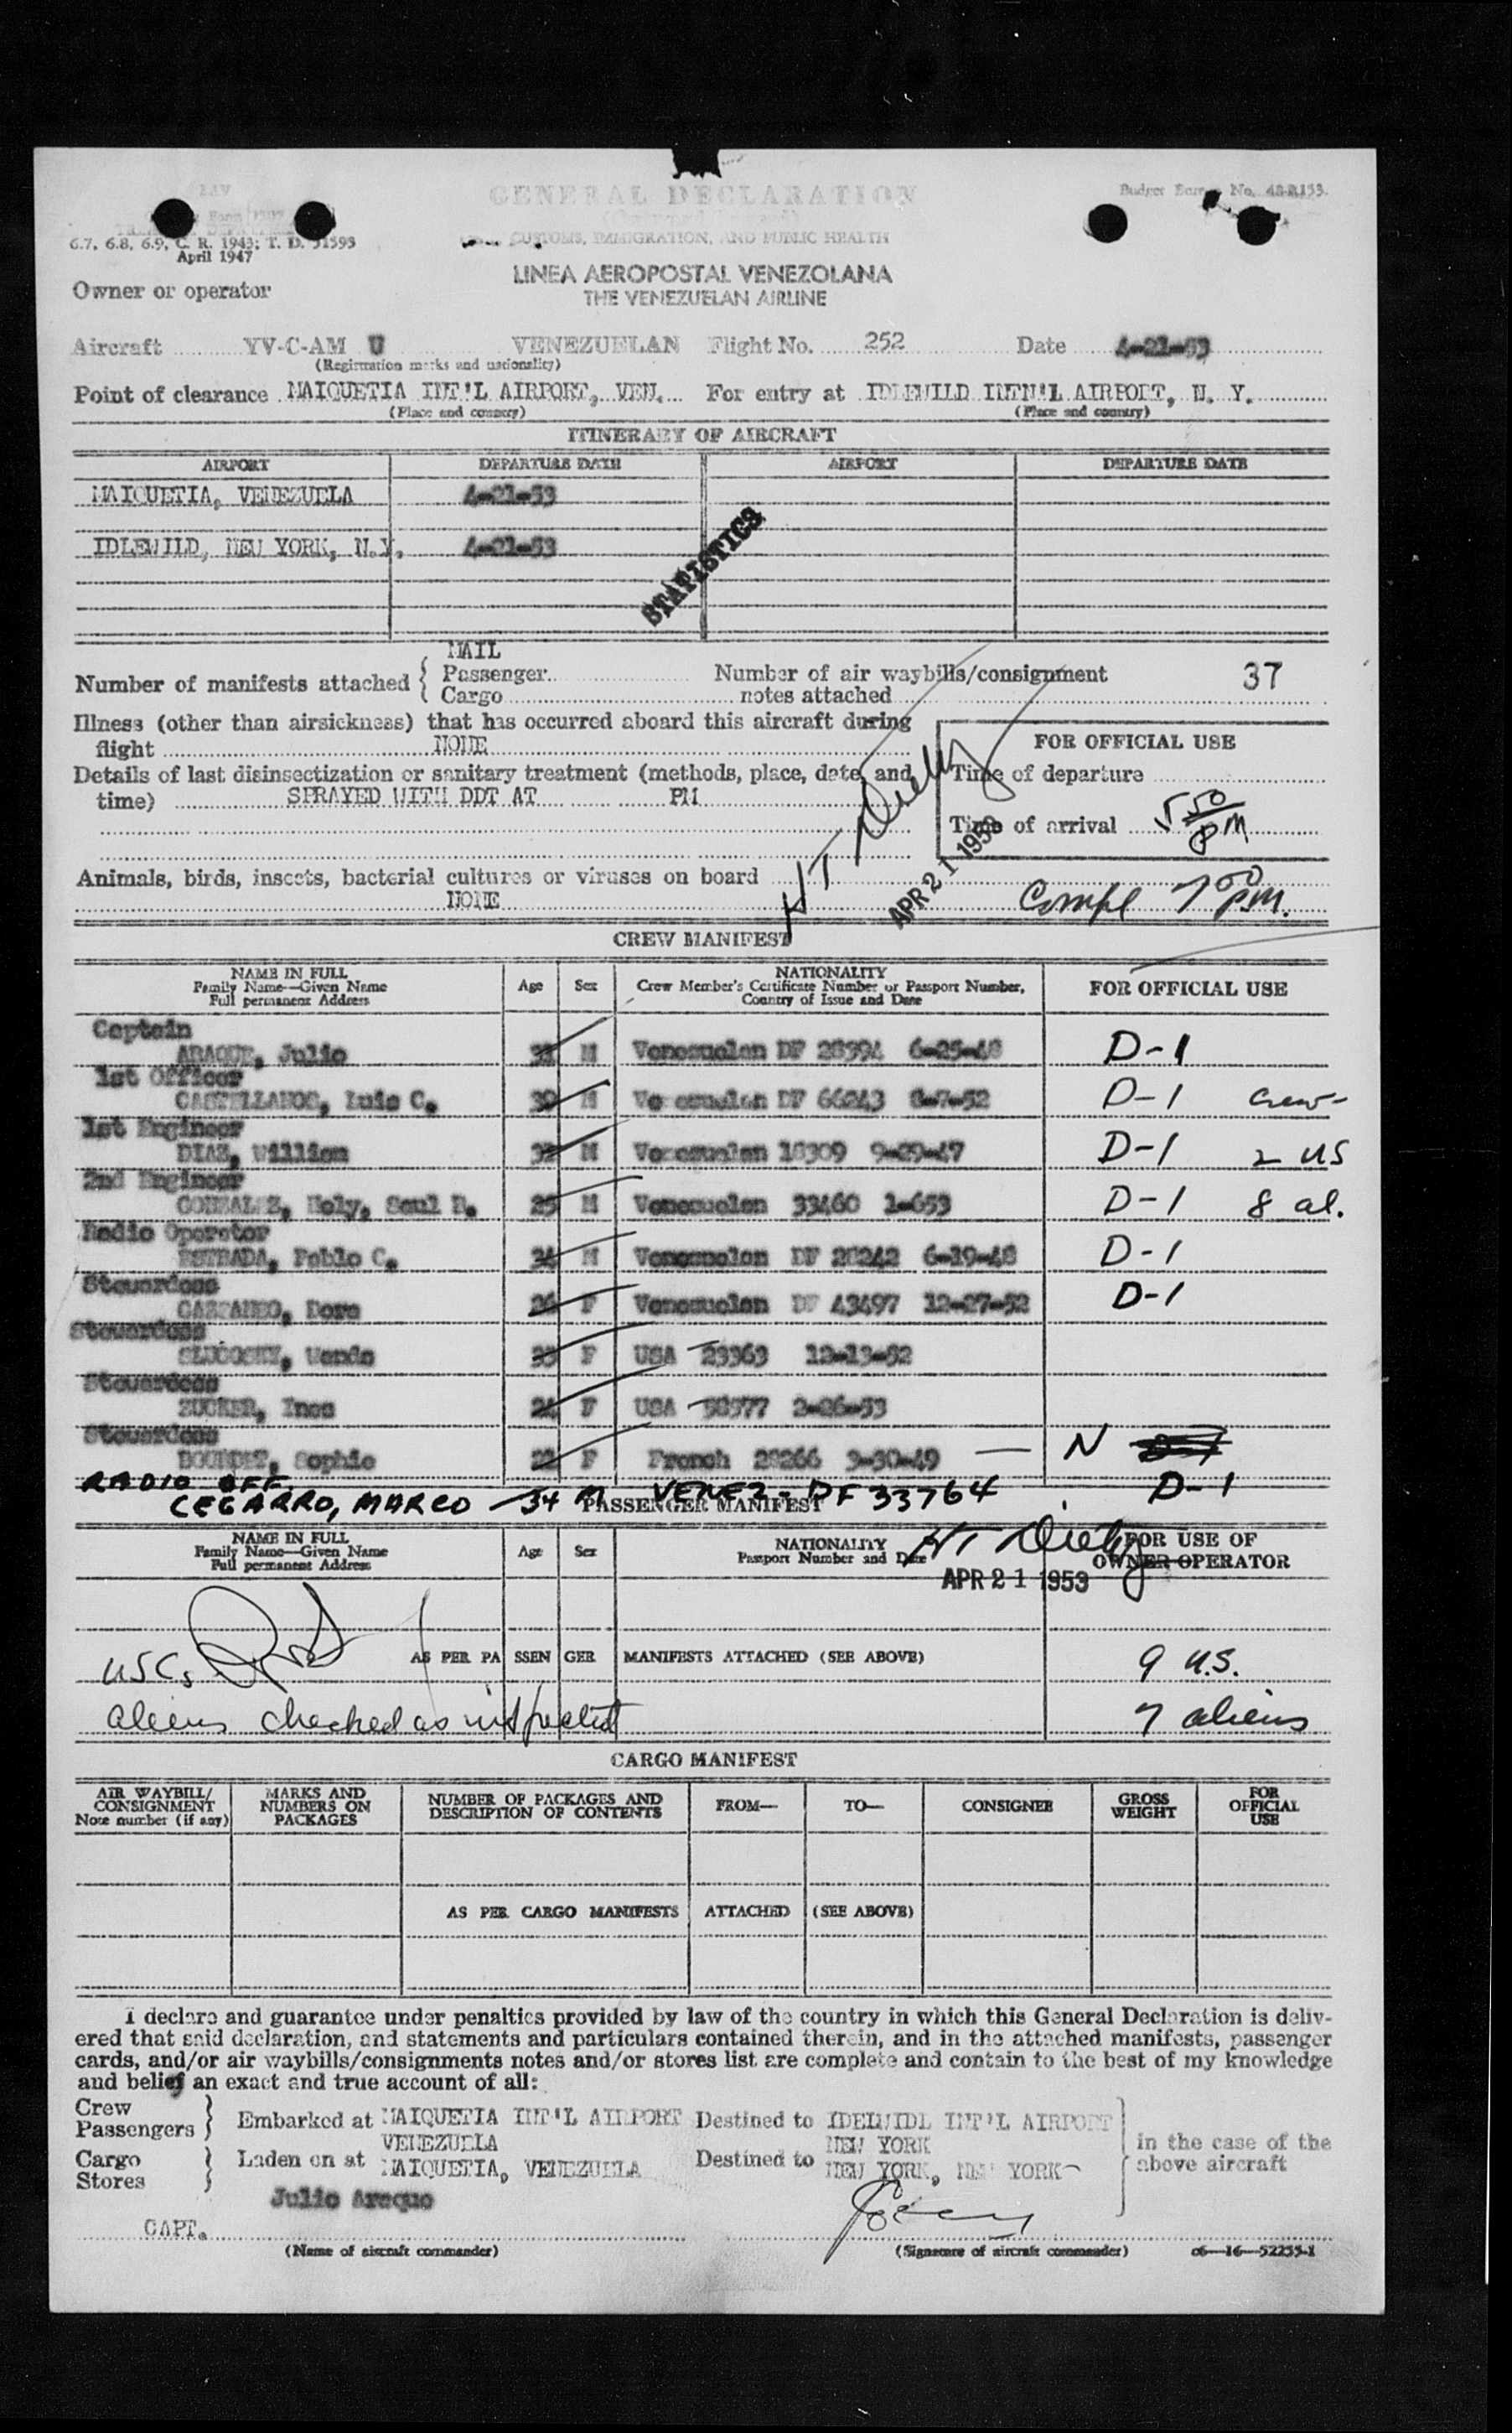 LAV
GENERAL DECLARATION
Budget Bureau No. 48-R153.
Form
6.7, 6.8, 6.9, C. R. 1943; T. D. 51593
CUSTOMS, IMMIGRATION, AND PUBLIC HEALTH
April 1947
LINEA AEROPOSTAL VENEZOLANA
Owner or operator
THE VENEZUELAN AIRLINE
Aircraft YV-C-AM U VENEZUELAN Flight No. 252 Date 4-21-53
(Registration marks and nationality)
Point of clearance MAIQUETIA INT'L AIRPORT, VEN. For entry at IDLEWILD INTN'L AIRPORT, N. Y.
(Place and country) (Place and country)
ITINERARY OF AIRCRAFT
AIRPORT DEPARTURE DATE AIRPORT DEPARTURE DATE
MAIQUETIA, VENEZUELA 4-21-53
STATISTICS
IDLEWILD, NEW YORK, N.Y. 4-21-53
MAIL
Number of manifests attached { Passenger Number of air waybills/consignment 37
Cargo notes attached
Illness (other than airsickness) that has occurred aboard this aircraft during
flight NONE
FOR OFFICIAL USE
Details of last disinsectization or sanitary treatment (methods, place, date, and
Time of departure
time) SPRAYED WITH DDT AT PM
Time of arrival 5 50 PM
Animals, birds, insects, bacterial cultures or viruses on board
NONE
APR 21 1953
Compl 7 00 P.M.
CREW MANIFEST
NAME IN FULL
Family Name—Given Name
Full permanent Address
Age Sex
NATIONALITY
Crew Member's Certificate Number or Passport Number,
Country of Issue and Date
FOR OFFICIAL USE
Captain
ARAQUE, Julio M Venezuelan DF 28394 6-25-48 D-1
1st Officer
CASTELLANOS, Luis C. 39 M Venezuelan DF 66243 8-7-52 D-1 Crew-
1st Engineer
DIAZ, William M Venezuelan 18309 9-29-47 D-1 2 US
2nd Engineer
GONZALEZ, Noly, Saul D. 25 M Venezuelan 33460 1-653 D-1 8 al.
Radio Operator
ESTRADA, Pablo C. 34 M Venezuelan DF 28242 6-19-48 D-1
Stewardess
CASTANEO, Dora 26 F Venezuelan DF 43497 12-27-52 D-1
Stewardess
SLUCOSKY, Wanda F USA 23363 12-13-52
Stewardess
ZUCKER, Ines 24 F USA 58577 2-26-53
Stewardess
Sophie 22 F French 28266 3-30-49 — N
RADIO OFF.
CEGARRO, MARCO — 34 M VENEZ - DF 33764 D-1
PASSENGER MANIFEST
NAME IN FULL
Family Name—Given Name
Full permanent Address
Age Sex
NATIONALITY
Passport Number and Date
FOR USE OF
OWNER OPERATOR
APR 21 1953
USCs AS PER PASSENGER MANIFESTS ATTACHED (SEE ABOVE) 9 U.S.
aliens checked as inspected 7 aliens
CARGO MANIFEST
AIR WAYBILL/
CONSIGNMENT
Note number (if any)
MARKS AND
NUMBERS ON
PACKAGES
NUMBER OF PACKAGES AND
DESCRIPTION OF CONTENTS
FROM— TO— CONSIGNEE
GROSS
WEIGHT
FOR
OFFICIAL
USE
AS PER CARGO MANIFESTS ATTACHED (SEE ABOVE)
I declare and guarantee under penalties provided by law of the country in which this General Declaration is deliv-
ered that said declaration, and statements and particulars contained therein, and in the attached manifests, passenger
cards, and/or air waybills/consignments notes and/or stores list are complete and contain to the best of my knowledge
and belief an exact and true account of all:
Crew
Passengers } Embarked at MAIQUETIA INT'L AIRPORT Destined to IDELWIDL INT'L AIRPORT
VENEZUELA NEW YORK in the case of the
Cargo
Stores } Laden on at MAIQUETIA, VENEZUELA Destined to NEW YORK, NEW YORK above aircraft
Julio Araque
CAPT.
(Name of aircraft commander) (Signature of aircraft commander) c6—16—52255-1